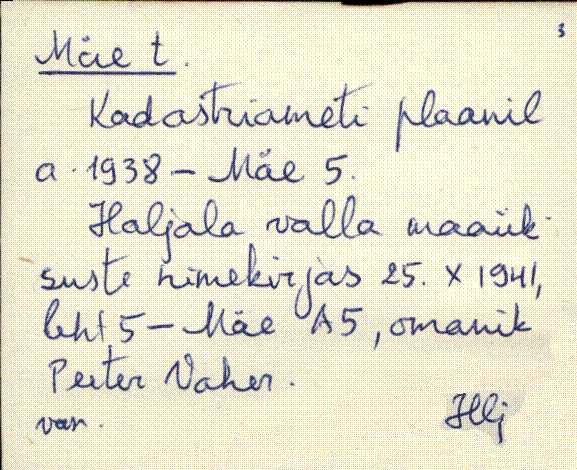 3
Mäe t.
Kadastriameti plaanil
a. 1938 – Mäe 5.
Haljala valla maaük-
suste nimekirjas 25. X 1941,
leht 5 – Mäe A5, omanik
Peeter Vaher.
van. Hlj